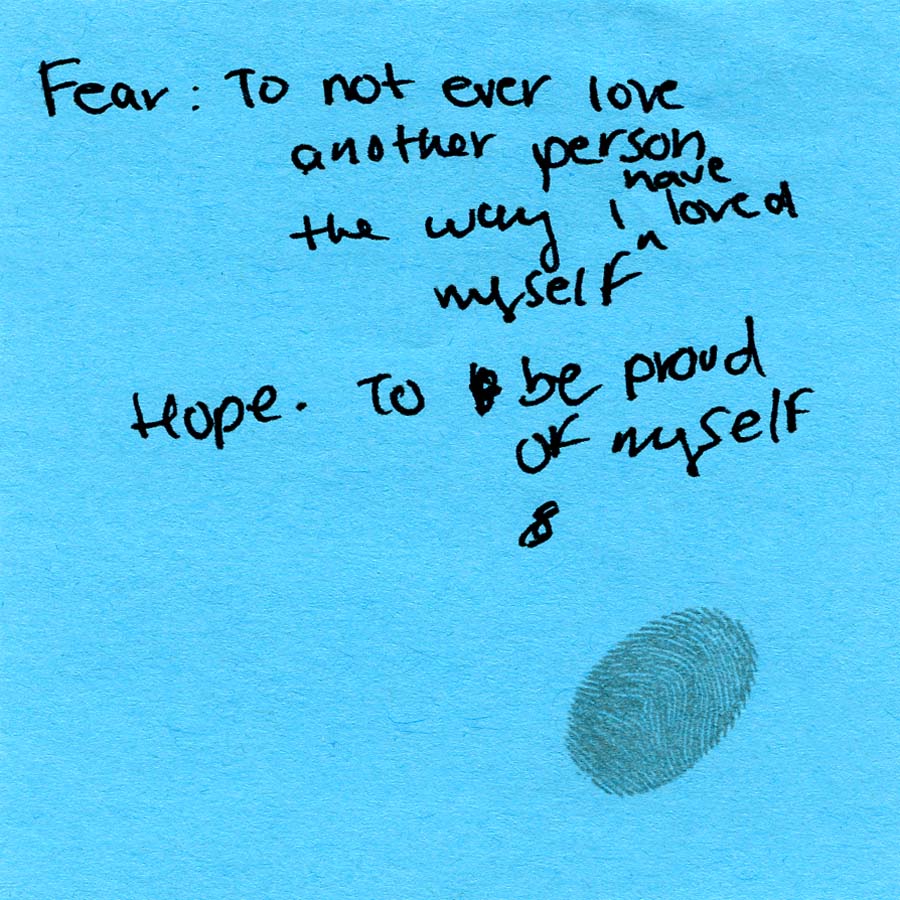 Fear: To not ever love
another person
the way i have loved
myself
Hope. To be proud
of myself